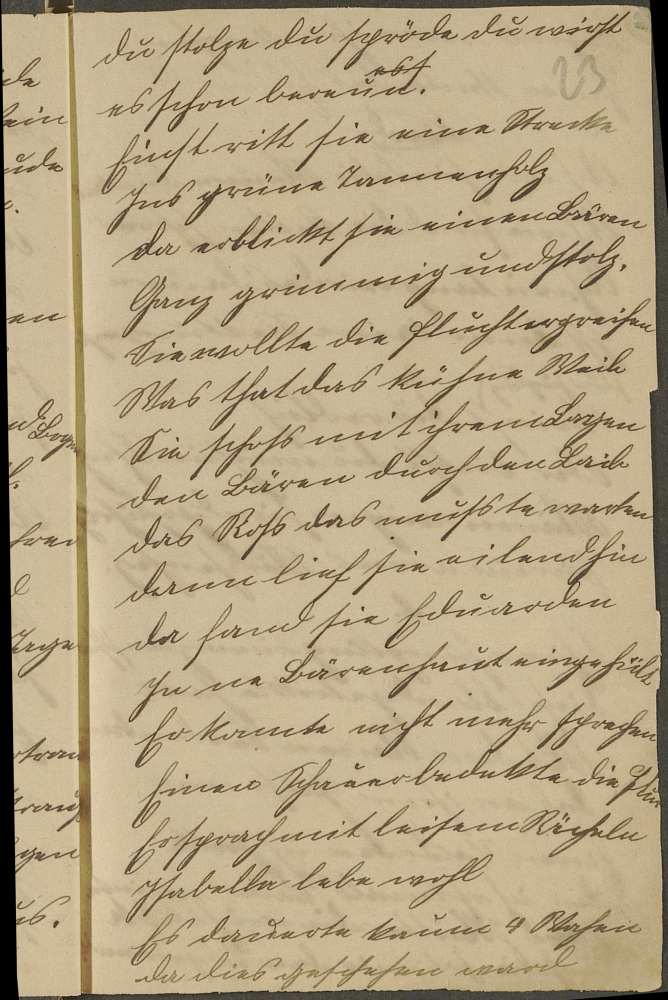 23
du stolze du spröde du wirst
es schon bereun.
Einst ritt sie eine Strecke
Ins grüne Tannenholz
da erblickt sie einen Bären
Ganz grimmig und stolz.
Sie wollte die Flucht ergreifen
Was that das kühne Weib
Sie schoß mit ihrem Bogen
den Bären durch den Leib
das Roß das mußste warten
dann lief sie eilend hin
da fand sie Eduarden
In ne Bärenhaut eingehüllt
Er konnte nicht mehr sprechen
Einen Schauer bedekte die
Er sprach mit leisem Röcheln
Isabella lebe wohl
Es dauerte kaum 4 Wochen
da dies geschehen ward